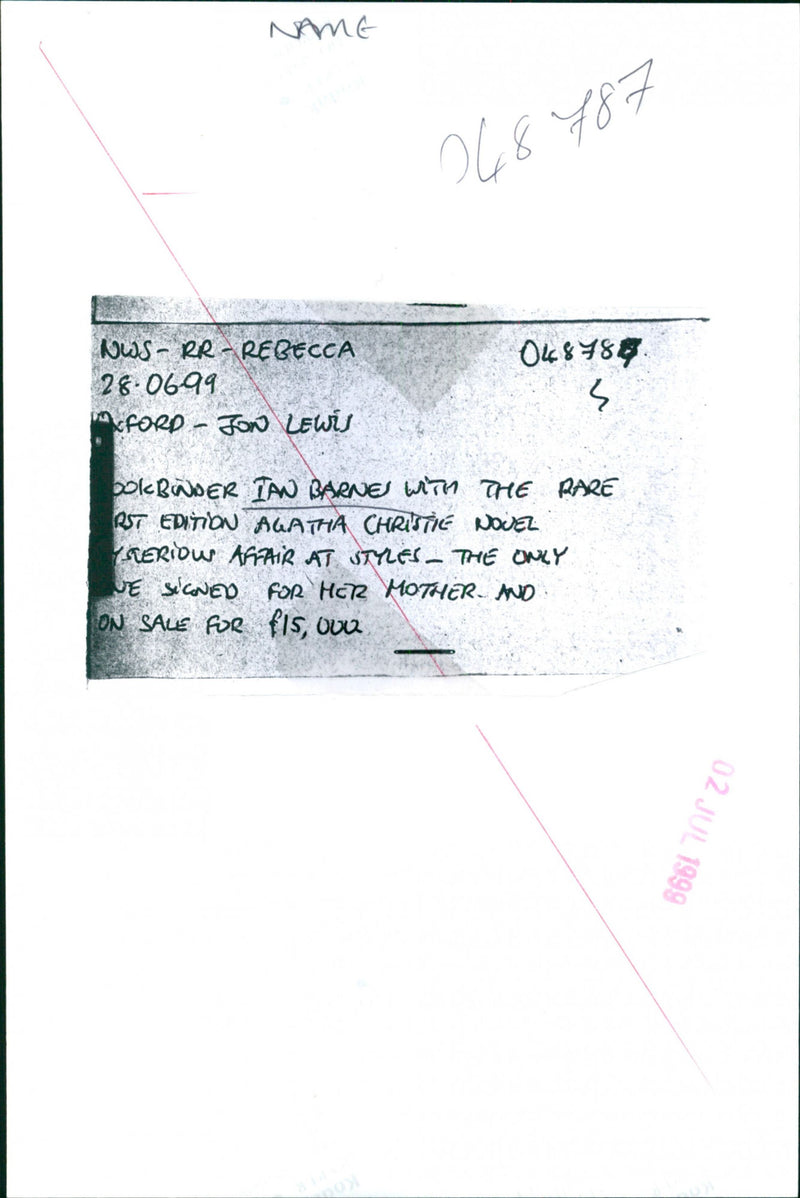 NAME
048787
NWS - RR - REBECCA 04878
28.06.99
XFORD - JON LEWIS
OOKBINDER IAN BARNES WITH THE RARE
RST EDITION AGATHA CHRISTIE NOVEL
YSTERIOUS AFFAIR AT STYLES - THE ONLY
NE SIGNED FOR HER MOTHER. AND
ON SALE FOR £15,000
02 JUL 1999